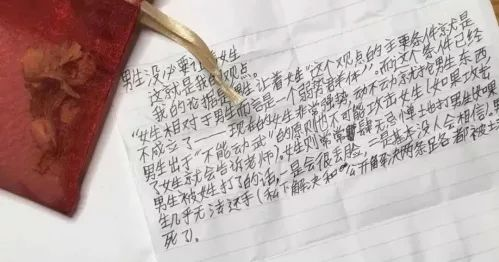 男生没必要让着女生
这就是我的观点。
我的依据是"男生让着女生"这个观点的主要条件就是
"女生相对于男生而言是一个弱势群体)。而这个条件已经
不成立了——现在的女生非常强势,动不动就抢男生东西,
男生出于"不能动武"的原则但不可能攻击女生(如果攻击
了女生就会告诉老师),女生则常常肆无忌惮地打男生如果
男生被女生打了的话,一是会很丢脸,二是基本没人会相信。男
生几乎无法还手(私下解决和公开解决两条后路都被
死了)。